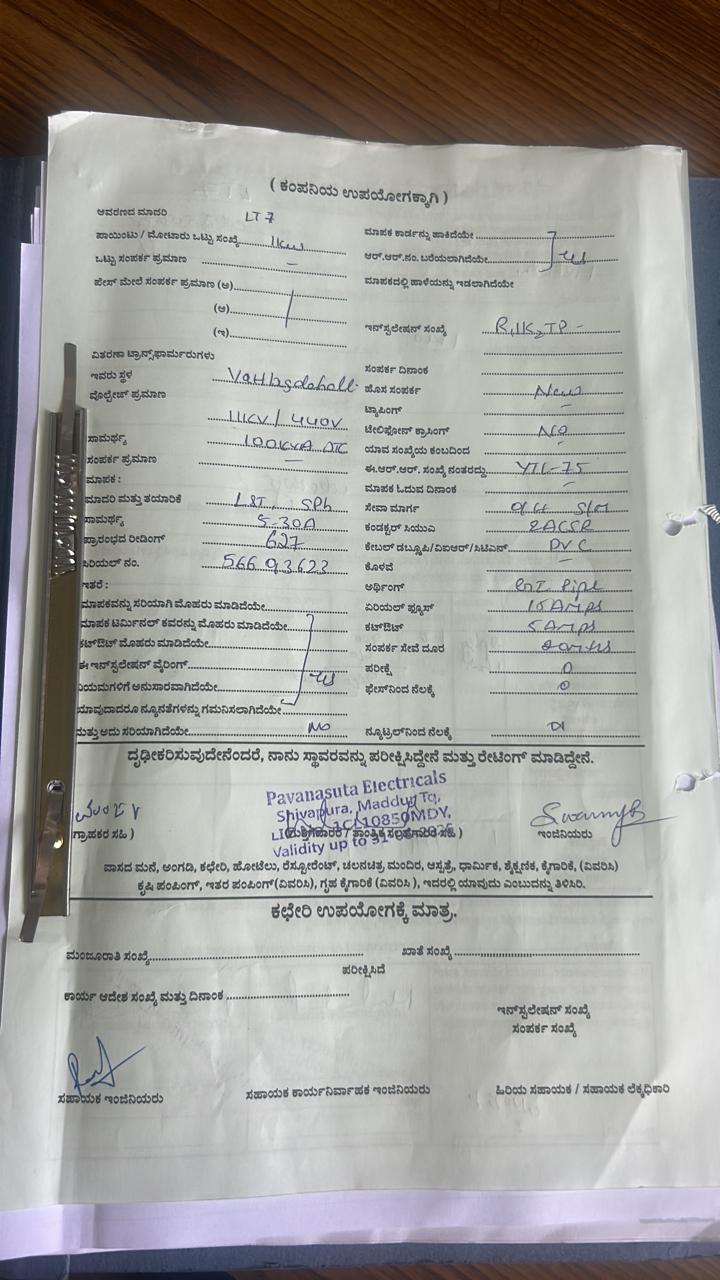 ( ಕಂಪನಿಯ ಉಪಯೋಗಕ್ಕಾಗಿ )
ಆವರಣದ ಮಾದರಿ LT 7
ಪಾಯಿಂಟು / ಮೋಟಾರು ಒಟ್ಟು ಸಂಖ್ಯೆ 1kw
ಒಟ್ಟು ಸಂಪರ್ಕ ಪ್ರಮಾಣ —
ಫೇಸ್ ಮೇಲೆ ಸಂಪರ್ಕ ಪ್ರಮಾಣ (ಅ)
(ಆ)
(ಇ)
ವಿತರಣಾ ಟ್ರಾನ್ಸ್‌ಫಾರ್ಮರುಗಳು
ಇವರು ಸ್ಥಳ
ವೋಲ್ಟೇಜ್ ಪ್ರಮಾಣ
11KV / 440V
ಸಾಮರ್ಥ್ಯ 100KVA DTC
ಸಂಪರ್ಕ ಪ್ರಮಾಣ —
ಮಾಪಕ :
ಮಾದರಿ ಮತ್ತು ತಯಾರಿಕೆ L&T, SPh
ಸಾಮರ್ಥ್ಯ 5-30A
ಪ್ರಾರಂಭದ ರೀಡಿಂಗ್ 627
ಸಿರಿಯಲ್ ನಂ. 56693623
ಇತರೆ :
ಮಾಪಕವನ್ನು ಸರಿಯಾಗಿ ಮೊಹರು ಮಾಡಿದೆಯೇ
ಮಾಪಕ ಟರ್ಮಿನಲ್ ಕವರನ್ನು ಮೊಹರು ಮಾಡಿದೆಯೇ
ಕಟ್‌ಔಟ್ ಮೊಹರು ಮಾಡಿದೆಯೇ
ಈ ಇನ್‌ಸ್ಟಲೇಷನ್ ವೈರಿಂಗ್
ನಿಯಮಗಳಿಗೆ ಅನುಸಾರವಾಗಿದೆಯೇ
ಯಾವುದಾದರೂ ನ್ಯೂನತೆಗಳನ್ನು ಗಮನಿಸಲಾಗಿದೆಯೇ
ಮತ್ತು ಅದು ಸರಿಯಾಗಿದೆಯೇ NO
ಮಾಪಕ ಕಾರ್ಡನ್ನು ಹಾಕಿದೆಯೇ
ಆರ್.ಆರ್.ನಂ. ಬರೆಯಲಾಗಿದೆಯೇ
ಮಾಪಕದಲ್ಲಿ ಹಾಳೆಯನ್ನು ಇಡಲಾಗಿದೆಯೇ
ಇನ್‌ಸ್ಟಲೇಷನ್ ಸಂಖ್ಯೆ
ಸಂಪರ್ಕ ದಿನಾಂಕ
ಹೊಸ ಸಂಪರ್ಕ New
ಟ್ಯಾಪಿಂಗ್ —
ಟೆಲಿಫೋನ್ ಕ್ರಾಸಿಂಗ್ NO
ಯಾವ ಸಂಖ್ಯೆಯ ಕಂಬದಿಂದ
ಈ.ಆರ್.ಆರ್. ಸಂಖ್ಯೆ ನಂತರದ್ದು YTL-75
ಮಾಪಕ ಓದುವ ದಿನಾಂಕ —
ಸೇವಾ ಮಾರ್ಗ
ಕಂಡಕ್ಟರ್ ಸಿಯುಎ 2ACSR
ಕೇಬಲ್ ಡಬ್ಲೂಪಿ/ಏಐಆರ್/ಸಿಟಿಎಸ್ PVC
ಕೊಳವೆ —
ಅರ್ಥಿಂಗ್ Pipe
ಏರಿಯಲ್ ಫ್ಯೂಸ್ 15AMPS
ಕಟ್‌ಔಟ್ 5AMPS
ಸಂಪರ್ಕ ಸೇವೆ ದೂರ
ಪರೀಕ್ಷೆ 0
ಫೇಸ್‌ನಿಂದ ನೆಲಕ್ಕೆ 0
ನ್ಯೂಟ್ರಲ್‌ನಿಂದ ನೆಲಕ್ಕೆ
ದೃಢೀಕರಿಸುವುದೇನೆಂದರೆ, ನಾನು ಸ್ಥಾವರವನ್ನು ಪರೀಕ್ಷಿಸಿದ್ದೇನೆ ಮತ್ತು ರೇಟಿಂಗ್ ಮಾಡಿದ್ದೇನೆ.
Pavanasuta Electricals
Shivapura, Maddur Tq,
1CL10850MDY,
Validity up to 31
ಗ್ರಾಹಕರ ಸಹಿ )
ಇಂಜಿನಿಯರು
ವಾಸದ ಮನೆ, ಅಂಗಡಿ, ಕಛೇರಿ, ಹೋಟೆಲು, ರೆಸ್ಟೋರೆಂಟ್, ಚಲನಚಿತ್ರ ಮಂದಿರ, ಆಸ್ಪತ್ರೆ, ಧಾರ್ಮಿಕ, ಶೈಕ್ಷಣಿಕ, ಕೈಗಾರಿಕೆ, (ವಿವರಿಸಿ)
ಕೃಷಿ ಪಂಪಿಂಗ್, ಇತರ ಪಂಪಿಂಗ್(ವಿವರಿಸಿ), ಗೃಹ ಕೈಗಾರಿಕೆ (ವಿವರಿಸಿ ), ಇದರಲ್ಲಿ ಯಾವುದು ಎಂಬುದನ್ನು ತಿಳಿಸಿರಿ.
ಕಛೇರಿ ಉಪಯೋಗಕ್ಕೆ ಮಾತ್ರ.
ಮಂಜೂರಾತಿ ಸಂಖ್ಯೆ ಖಾತೆ ಸಂಖ್ಯೆ
ಪರೀಕ್ಷಿಸಿದೆ
ಕಾರ್ಯ ಆದೇಶ ಸಂಖ್ಯೆ ಮತ್ತು ದಿನಾಂಕ
ಇನ್‌ಸ್ಟಲೇಷನ್ ಸಂಖ್ಯೆ
ಸಂಪರ್ಕ ಸಂಖ್ಯೆ
ಸಹಾಯಕ ಇಂಜಿನಿಯರು ಸಹಾಯಕ ಕಾರ್ಯನಿರ್ವಾಹಕ ಇಂಜಿನಿಯರು ಹಿರಿಯ ಸಹಾಯಕ / ಸಹಾಯಕ ಲೆಕ್ಕಾಧಿಕಾರಿ